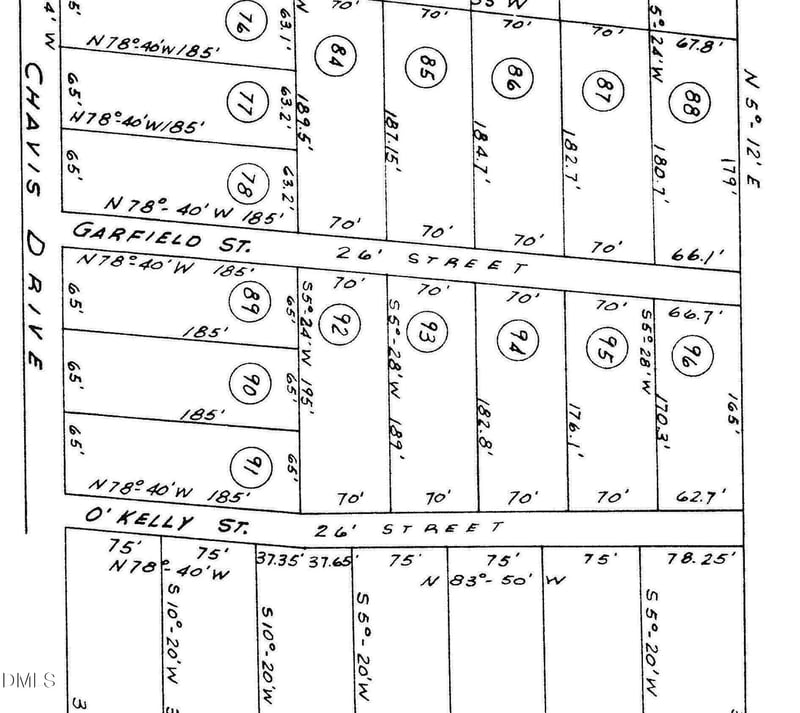 5'
76
63.1'
N
70'
84
70'
85
W
70'
86
70'
87
5°-24'W
67.8'
88
N 5°-12' E
179'
4' W
N 78°-40'W 185'
65'
77
63.2'
189.5'
187.15'
184.7'
182.7'
180.7'
N 78°-40'W 185'
65'
78
63.2'
N 78°-40'W 185'
70'
70'
70'
70'
66.1'
CHAVIS DRIVE
GARFIELD ST.
26' STREET
N 78°-40'W 185'
65'
89
65'
S 5°-24'W 195'
70'
92
70'
93
70'
94
70'
95
66.7'
96
S 5°-28'W 189'
182.8'
176.1'
S 5°-28'W
170.3'
165'
185'
65'
90
65'
185'
65'
91
65'
N 78°-40'W 185'
70'
70'
70'
70'
62.7'
O'KELLY ST.
26' STREET
75'
75'
37.35'
37.65'
75'
75'
75'
78.25'
N 78°-40'W
N 83°-50' W
S 10°-20'W
S 10°-20'W
S 5°-20'W
S 5°-20'W
DMLS
3